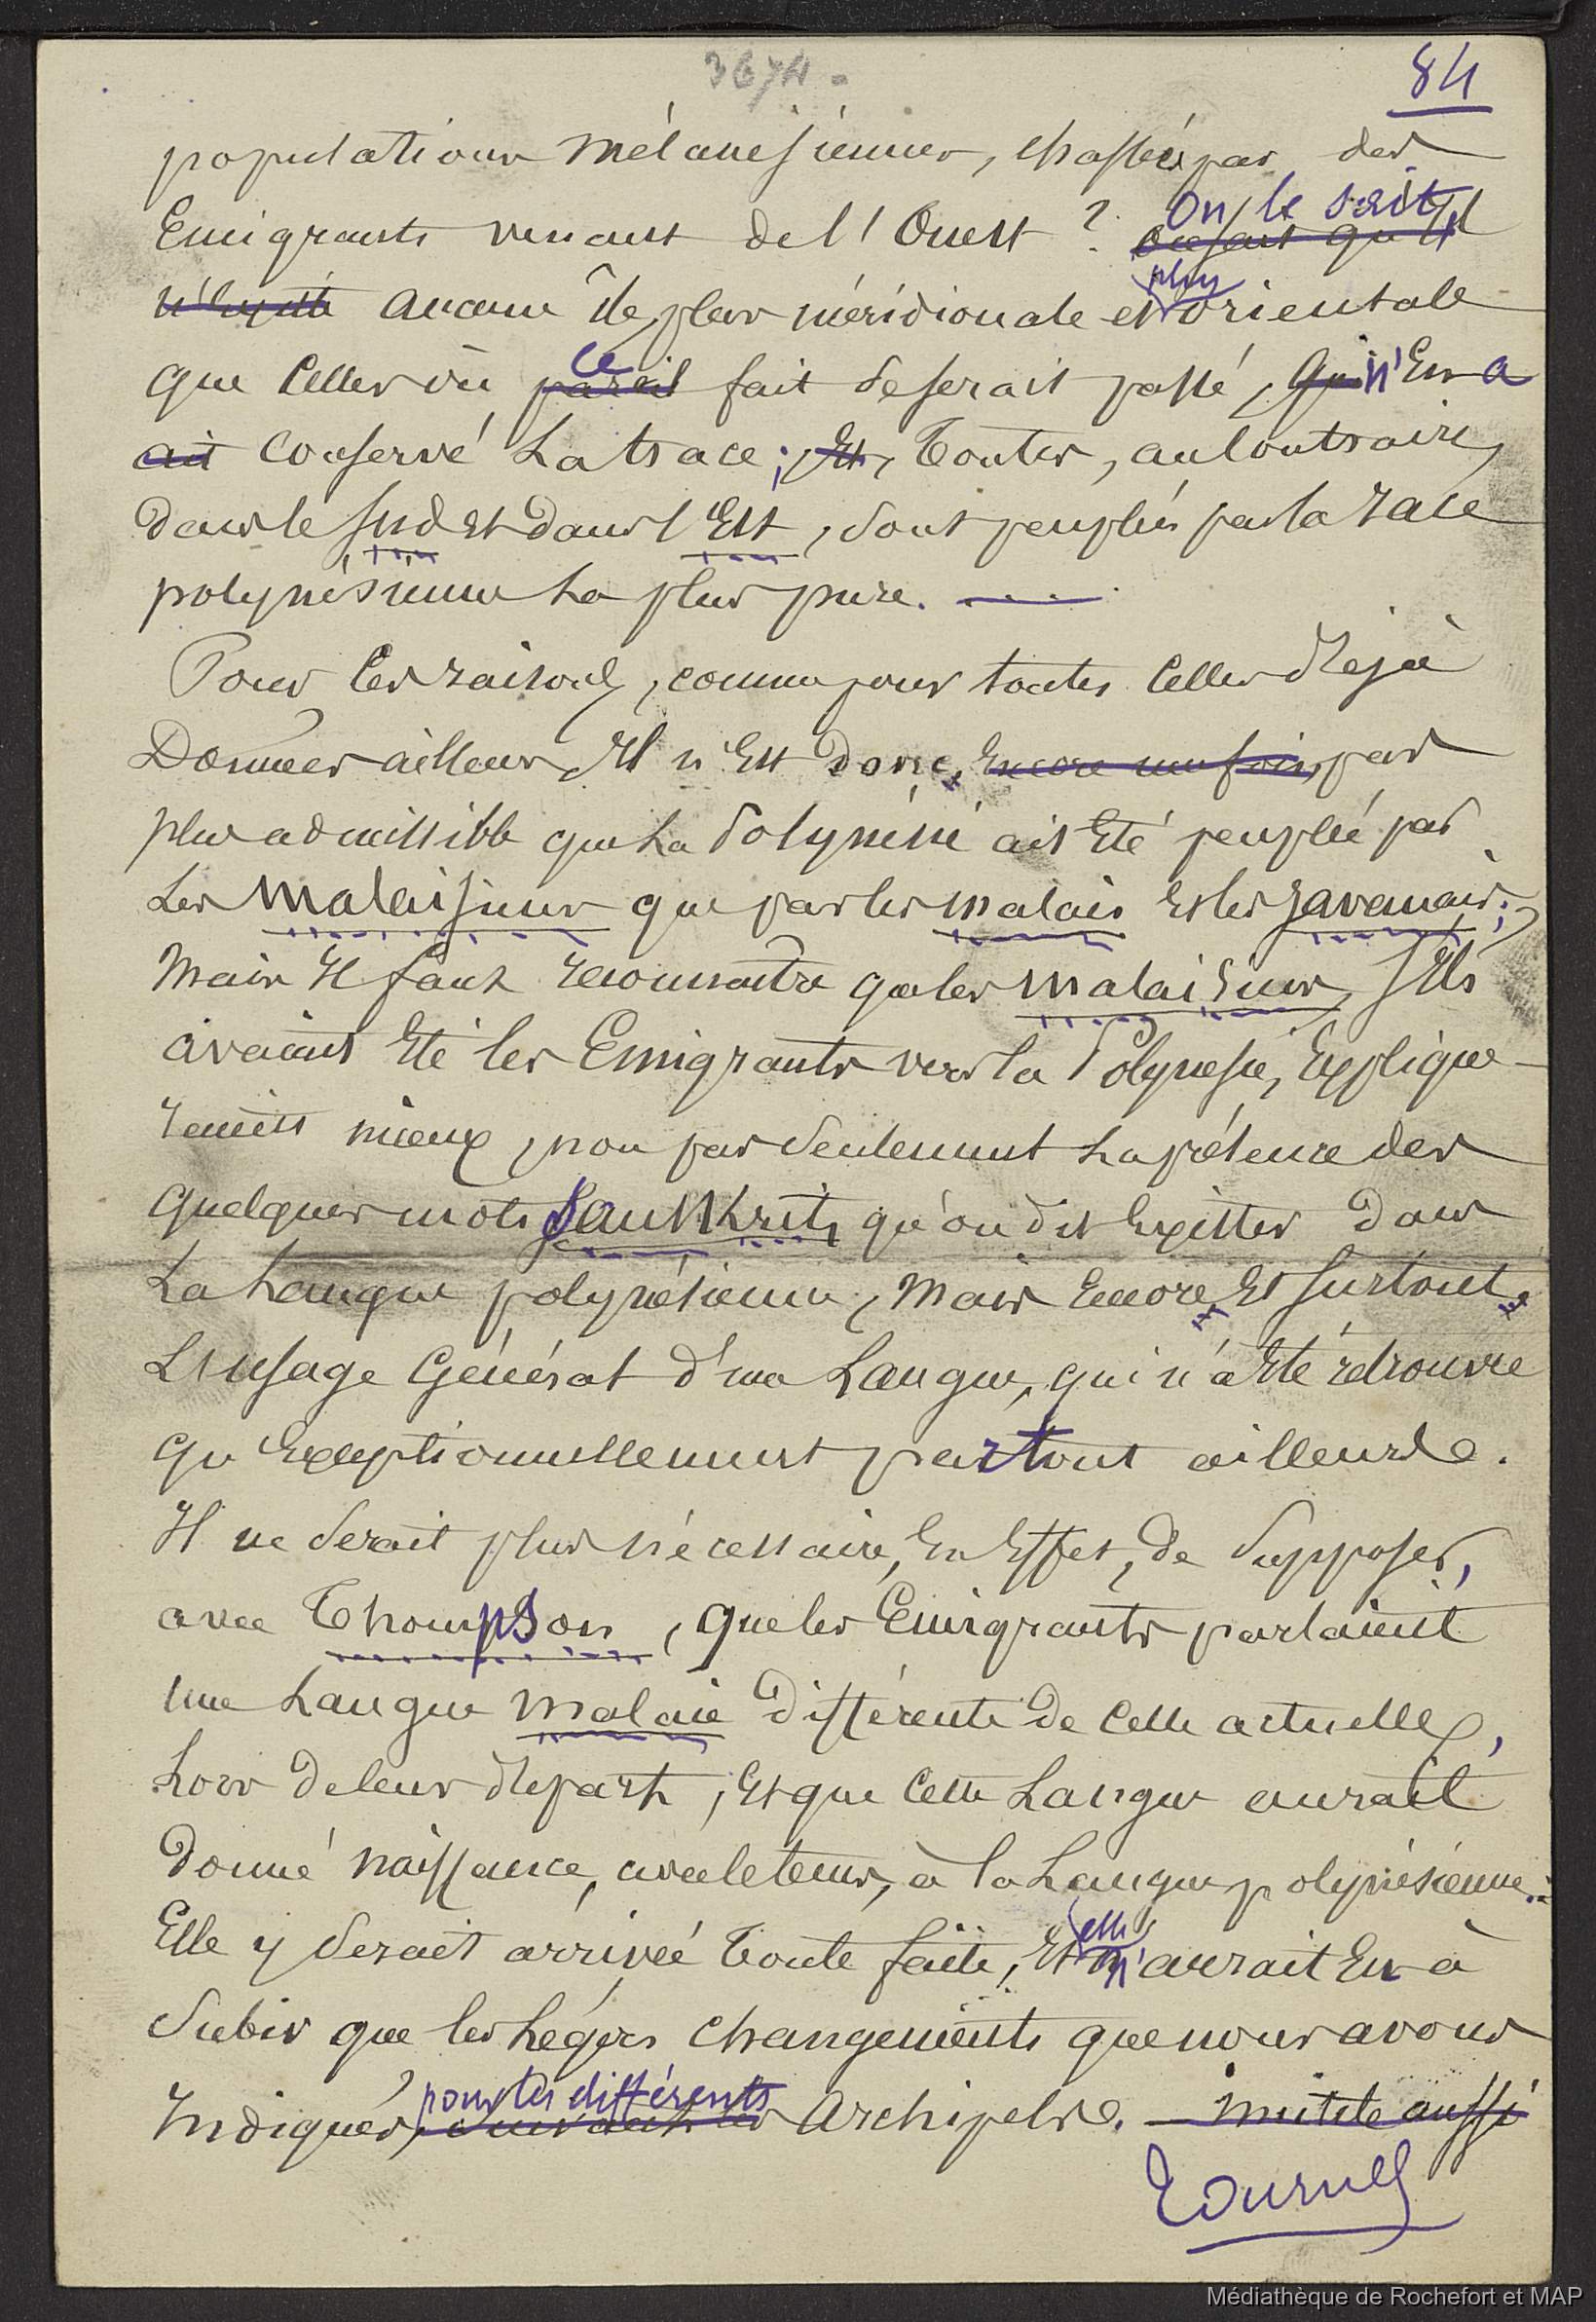 3674.
84
populations mélanésiennes, chassées par des
Emigrants venant de l'Ouest ? On le sait,
on sait qu'il
plus
n'existe aucune île plus méridionale et orientale
ce
que celles où pareil fait se serait passé, qui n'en a
ait conservé la trace ; Et, toutes, au contraire,
dans le sud et dans l'Est, sont peuplées par la race
polynésienne la plus pure. ----
Pour ces raisons, comme pour toutes celles déjà
Données ailleurs, Il n'Est donc, Encore une fois, pas
plus admissible que la Polynésie ait Eté peuplée par
Les Malaisiens que par les Malais et les Javanais ;
Mais Il faut reconnaitre que les Malaisiens, s'Ils
avaient Eté les Emigrants vers la Polynésie, Explique-
raient mieux, non pas seulement la présence des
quelques mots Sanskrits qu'on dit Exister dans
La Langue polynésienne, Mais Encore, Et surtout,
L'usage Général d'une Langue, qui n'a Eté retrouvée
qu'Exceptionnellement partout ailleurs.
Il ne serait plus nécessaire, En Effet, de supposer,
avec Thompson, que les Emigrants parlaient
une Langue Malaie différente de celle actuelle,
Lors de leur départ, Et que cette Langue aurait
Donné naissance, avec le temps, à la Langue polynésienne.
elle
Elle y serait arrivée toute faite, Et n'aurait Eu à
Subir que les Légers changements que nous avons
pour les différents
Indiqués, suivant les Archipels. — inutile aussi
Tournez
Médiathèque de Rochefort et MAP